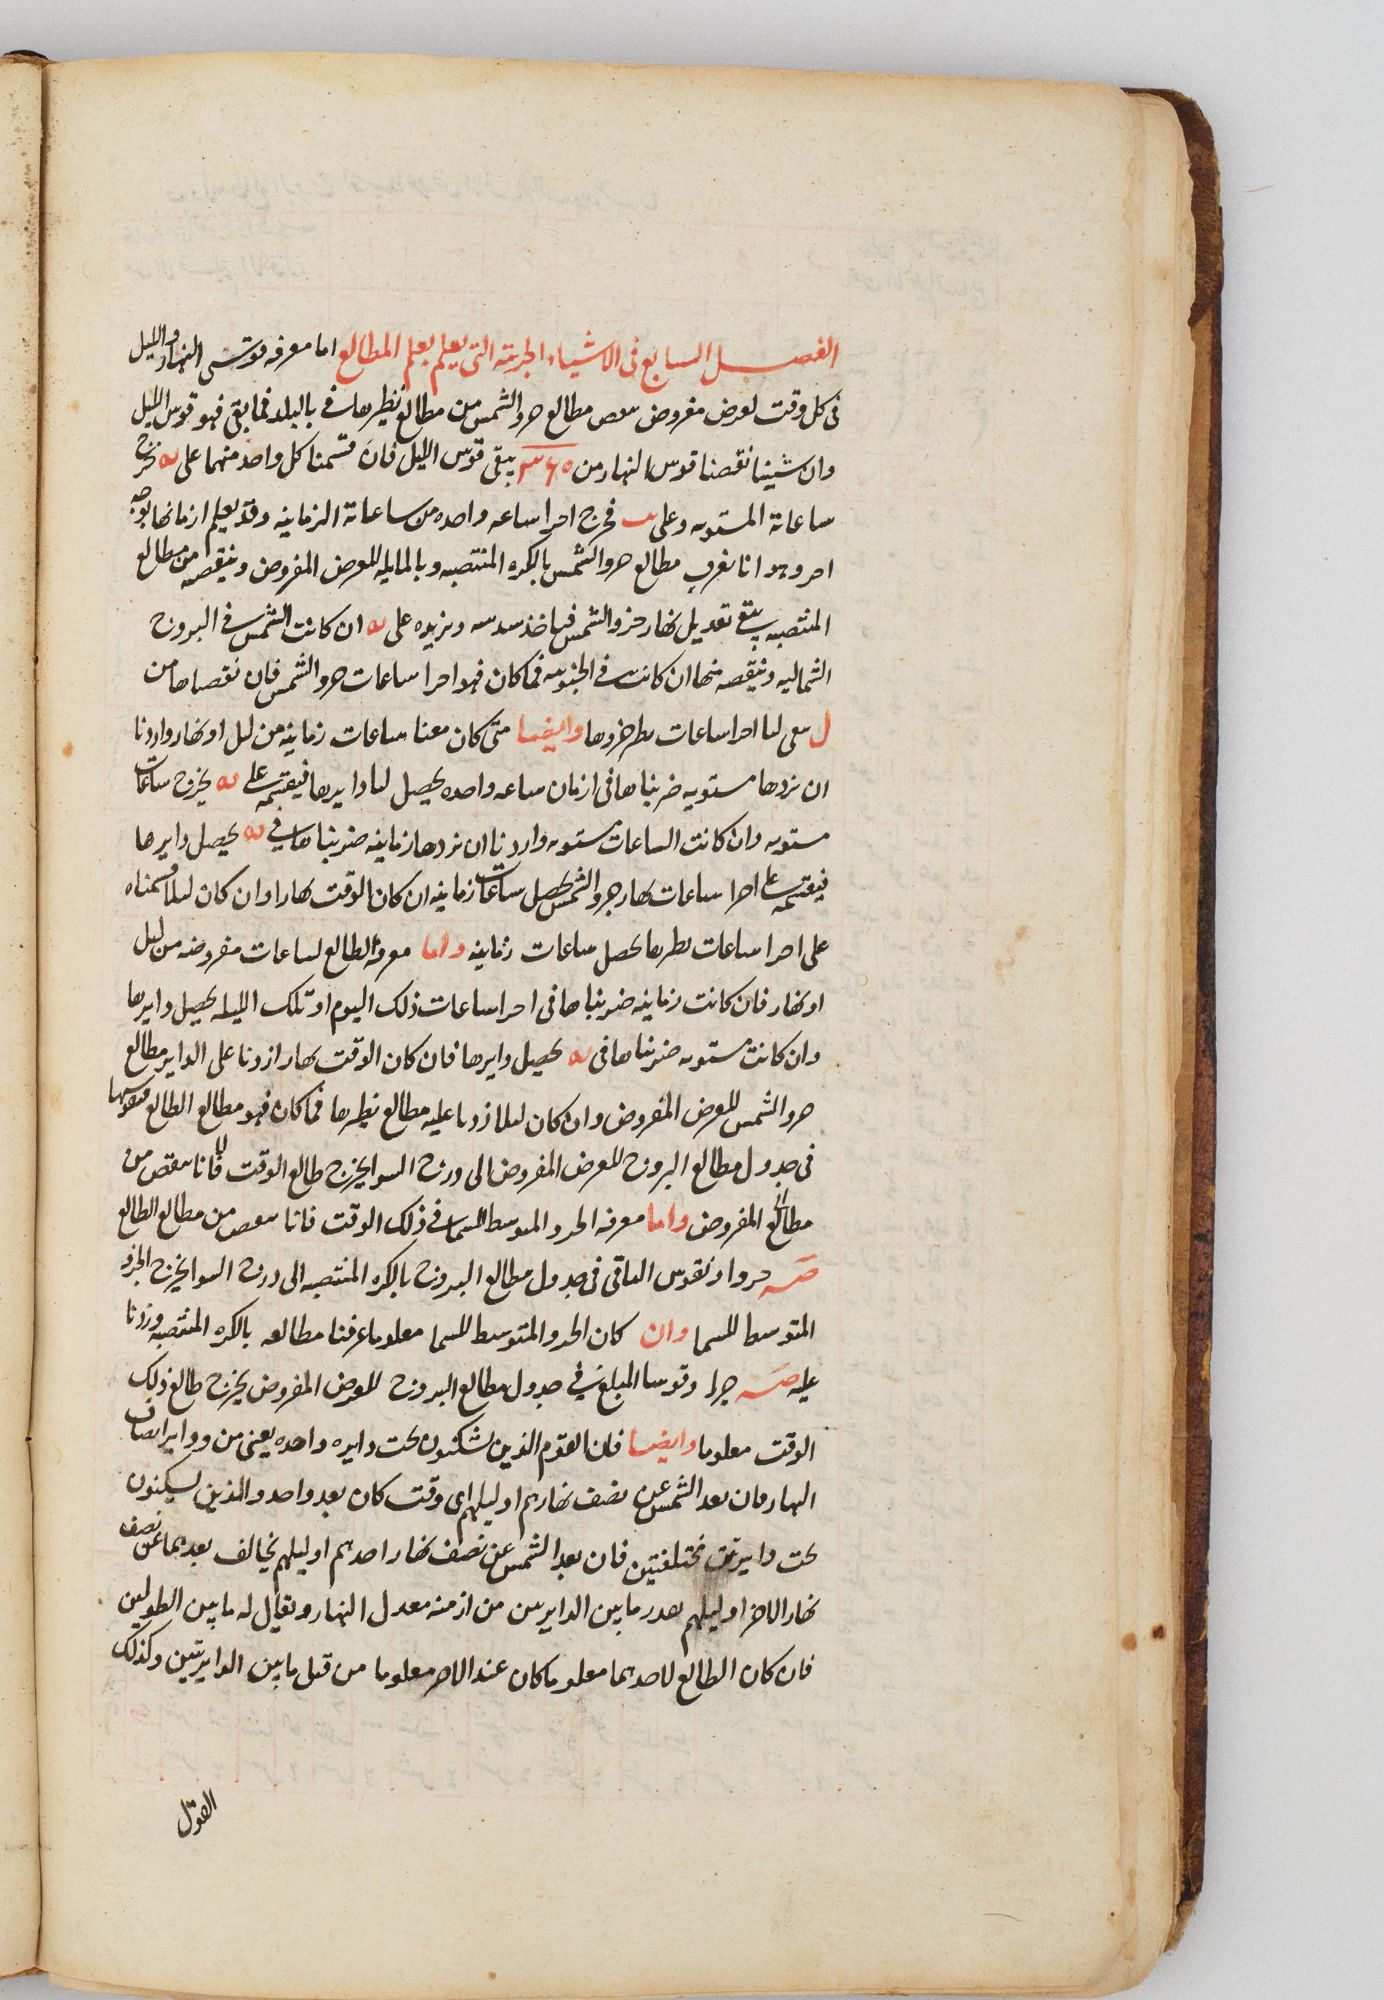 الفصل السابع فى الاشياء الجزئية التى يعلم بعلم المطالع اما معرفه قوسى النهار والليل
فى كل وقت لعرض مفروض ننقص مطالع جزو الشمس من مطالع نظيرها فى بالبلد فما بقى فهو قوس الليل
وان شينا نقصنا قوس النهار من ٣٦٠ يبقى قوس الليل فان قسمنا كل واحد منهما على يه تخرج
ساعاته المستويه وعلى يب فخرج اجزا ساعه واحده من ساعاته الزمانيه وقد يعلم ازمانها بوجه
اخر وهو انا نعرف مطالع جزو الشمس بالكره المنتصبه وبالمايله للعرض المفروض وننقصه من مطالع
المنتصبه يبقى تعديل نهار جزو الشمس فياخذ سدسه ونزيده على يه ان كانت الشمس فى البروج
الشماليه وننقصه منها ان كانت فى الجنوبيه فما كان فهو اجزا ساعات جزو الشمس فان نقصناها من
ل بقى لنا اجزا ساعات نظير جزوها وايضا متى كان معنا ساعات زمانيه من ليل او نهار واردنا
ان نردها مستويه ضربناها فى ازمان ساعه واحده يحصل لنا دايرها فيقتسمه على يه يخرج ساعات
مستويه وان كانت الساعات مستويه واردنا ان نردها زمانيه ضربناها فى يه يحصل دايرها
فيقتسمه على اجزا ساعات نهار جزو الشمس يحصل ساعات زمانيه ان كان الوقت نهارا وان كان ليلا قسمناه
على اجزا ساعات نظيرها يحصل ساعات زمانيه واما معرفه الطالع لساعات مفروضه من ليل
او نهار فان كانت زمانيه ضربناها فى اجزا ساعات ذلك اليوم او تلك الليله يحصل دايرها
وان كانت مستويه ضربناها فى يه يحصل دايرها فان كان الوقت نهارا زدنا على الداير مطالع
جزو الشمس للعرض المفروض وان كان ليلا زدنا عليه مطالع نظيرها فما كان فهو مطالع الطالع فنقوسها
فى جدول مطالع البروج للعرض المفروض الى درج السوا يخرج طالع الوقت لانا ننقص من
مطالع المفروض واما معرفه الجزو المتوسط السما فى ذلك الوقت فانا ننقص من مطالع الطالع
ص جزوا ونقوس الباقى فى جدول مطالع البروج بالكره المنتصبه الى درج السوا يخرج الجزو
المتوسط للسما وان كان الجزو المتوسط للسما معلوما عرفنا مطالعه بالكره المنتصبه وزدنا
عليه ص جزا وقوسنا المبلغ فى جدول مطالع البروج للعرض المفروض يخرج طالع ذلك
الوقت معلوما وايضا فان القوم الذين يسكنون تحت دايره واحده يعنى من دواير انصاف
النهار فان بعد الشمس عن نصف نهارهم او ليلهم اى وقت كان بعد واحد والذين يسكنون
تحت دايرتين مختلفتين فان بعد الشمس عن نصف نهار احدهم او ليلهم يخالف بعدهما عن نصف
نهار الاخر او ليلهم بقدر ما بين الدايرتين من ازمنه معدل النهار ويقال له ما بين الطولين
فان كان الطالع لاحدهما معلوما كان عند الاخر معلوما من قبل ما بين الدايرتين وكذلك
القول